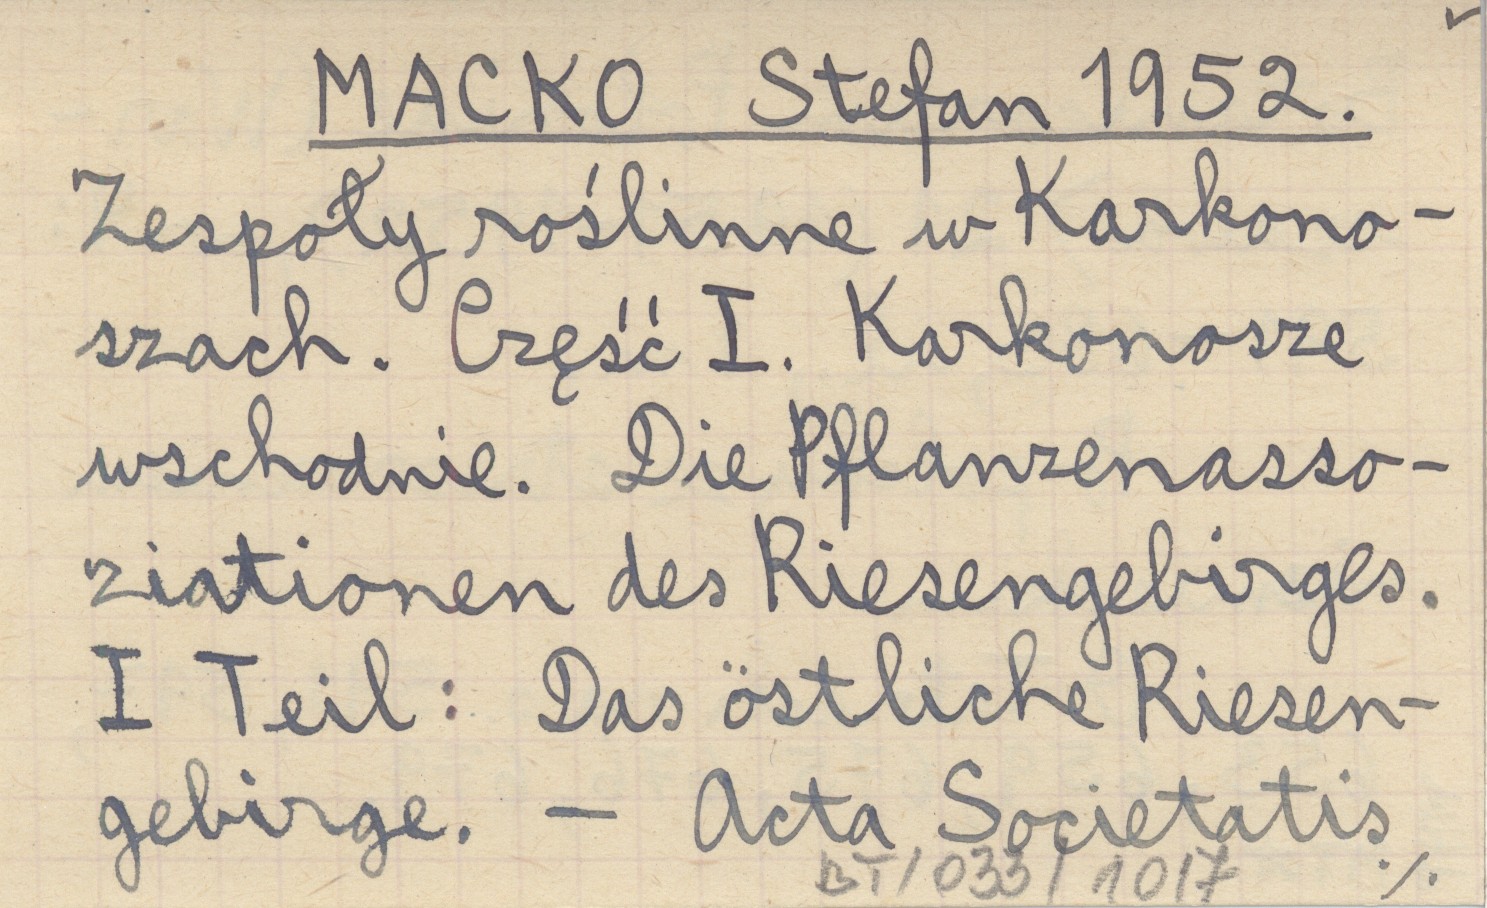 MACKO Stefan 1952.
Zespoły roślinne w Karkono-
szach. Część I. Karkonosze
wschodnie. Die Pflanzenasso-
ziationen des Riesengebirges.
I Teil: Das östliche Riesen-
gebirge. — Acta Societatis
BT/033/1017 ./.